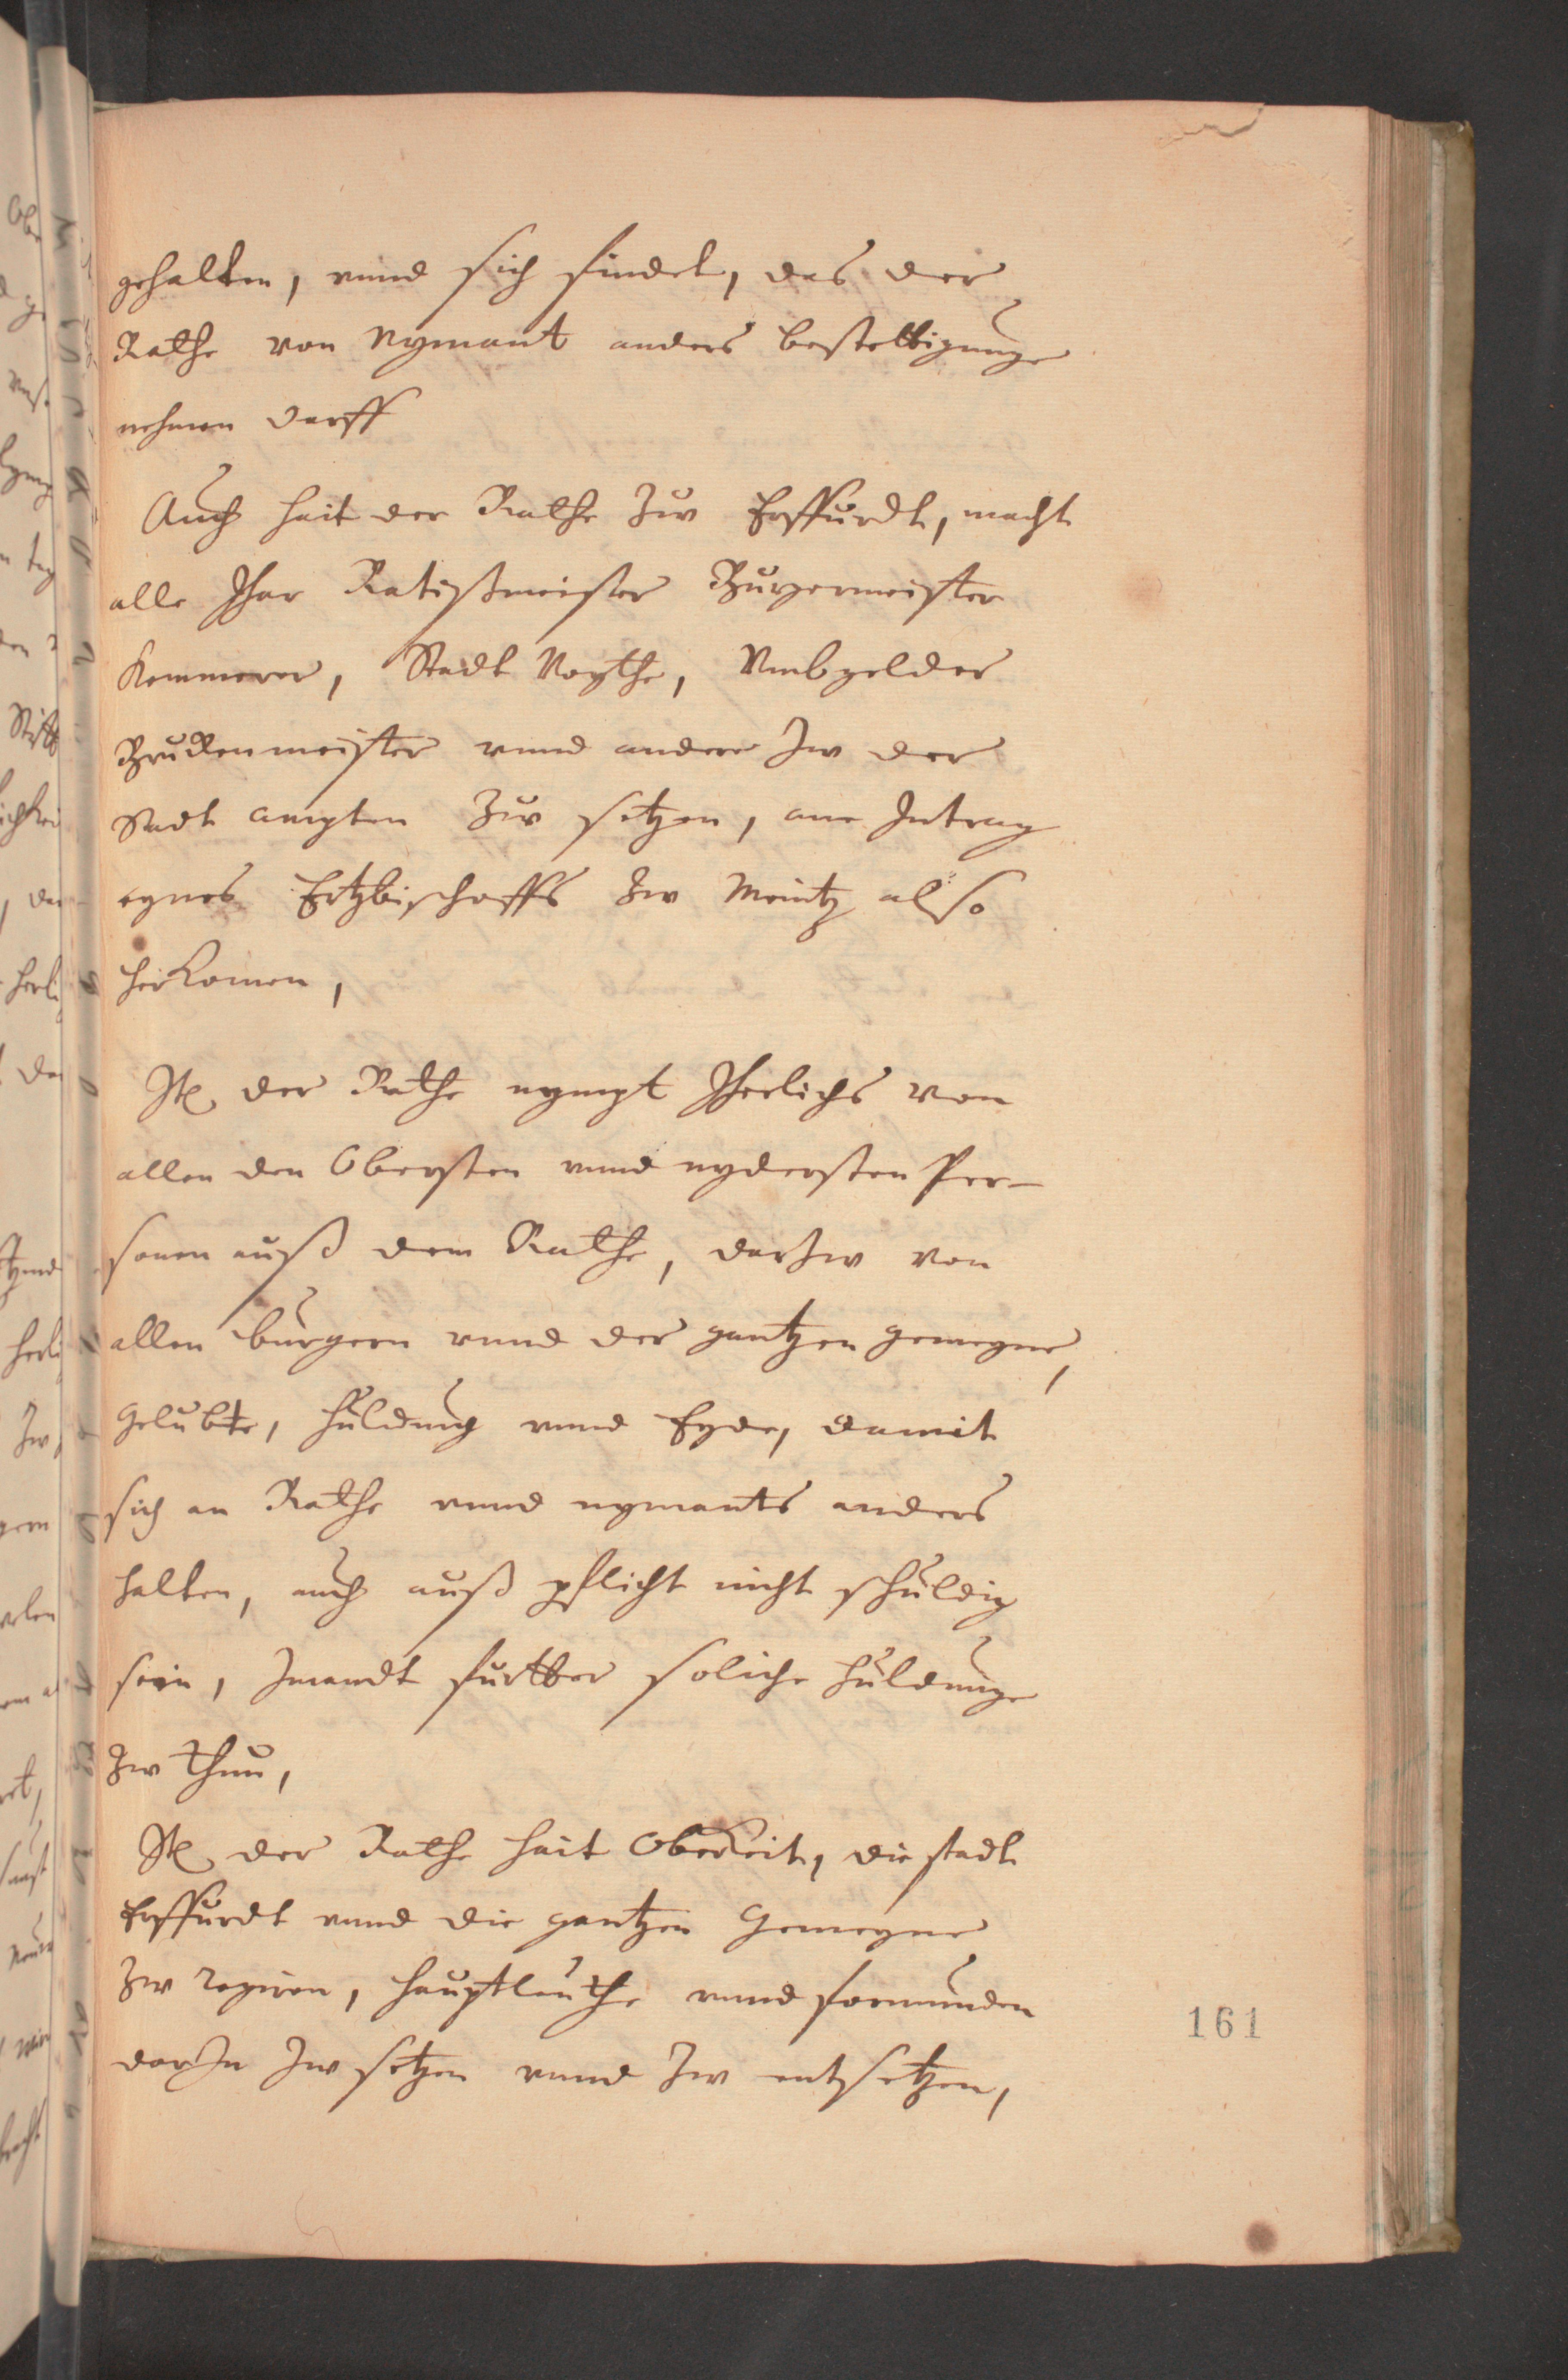 gehalten, unnd sich findet, das der
Rathe von Nymant anders bestettigunge
nehmen darff
Auch hait der Rathe Zuw Erffurdt, macht
alle Jhar Ratißmeister Burgermeister
Kemmerer, Stadt Vogthe, Umbgelder
Bruckenmeister unnd andere Jnn der
Stadt ampten Zuw setzen, ane Jntrag
eynes Ertzbischoffs Zw Meintz also
herkomen,
Jt. der Rathe nympt Jherlichs von
allen den Obersten unnd nydersten Per-
sonen auß dem Rathe, darzw von
allen burgern unnd der gantzen gemeyne,
Gelubte, huldung unnd Eyde, damit
sich an Rathe unnd nymants anders
halten, auch auß pflicht nicht schuldig
sein, Jmandt furtter soliche huldunge
Zw thun,
Jt. der Rathe hait Oberkeit, die stadt
Erffurdt unnd die gantzen Gemeyne
Zw regiren, hauptleuthe unnd formunden
darJn Zw setzen unnd Zw entsetzen,
161